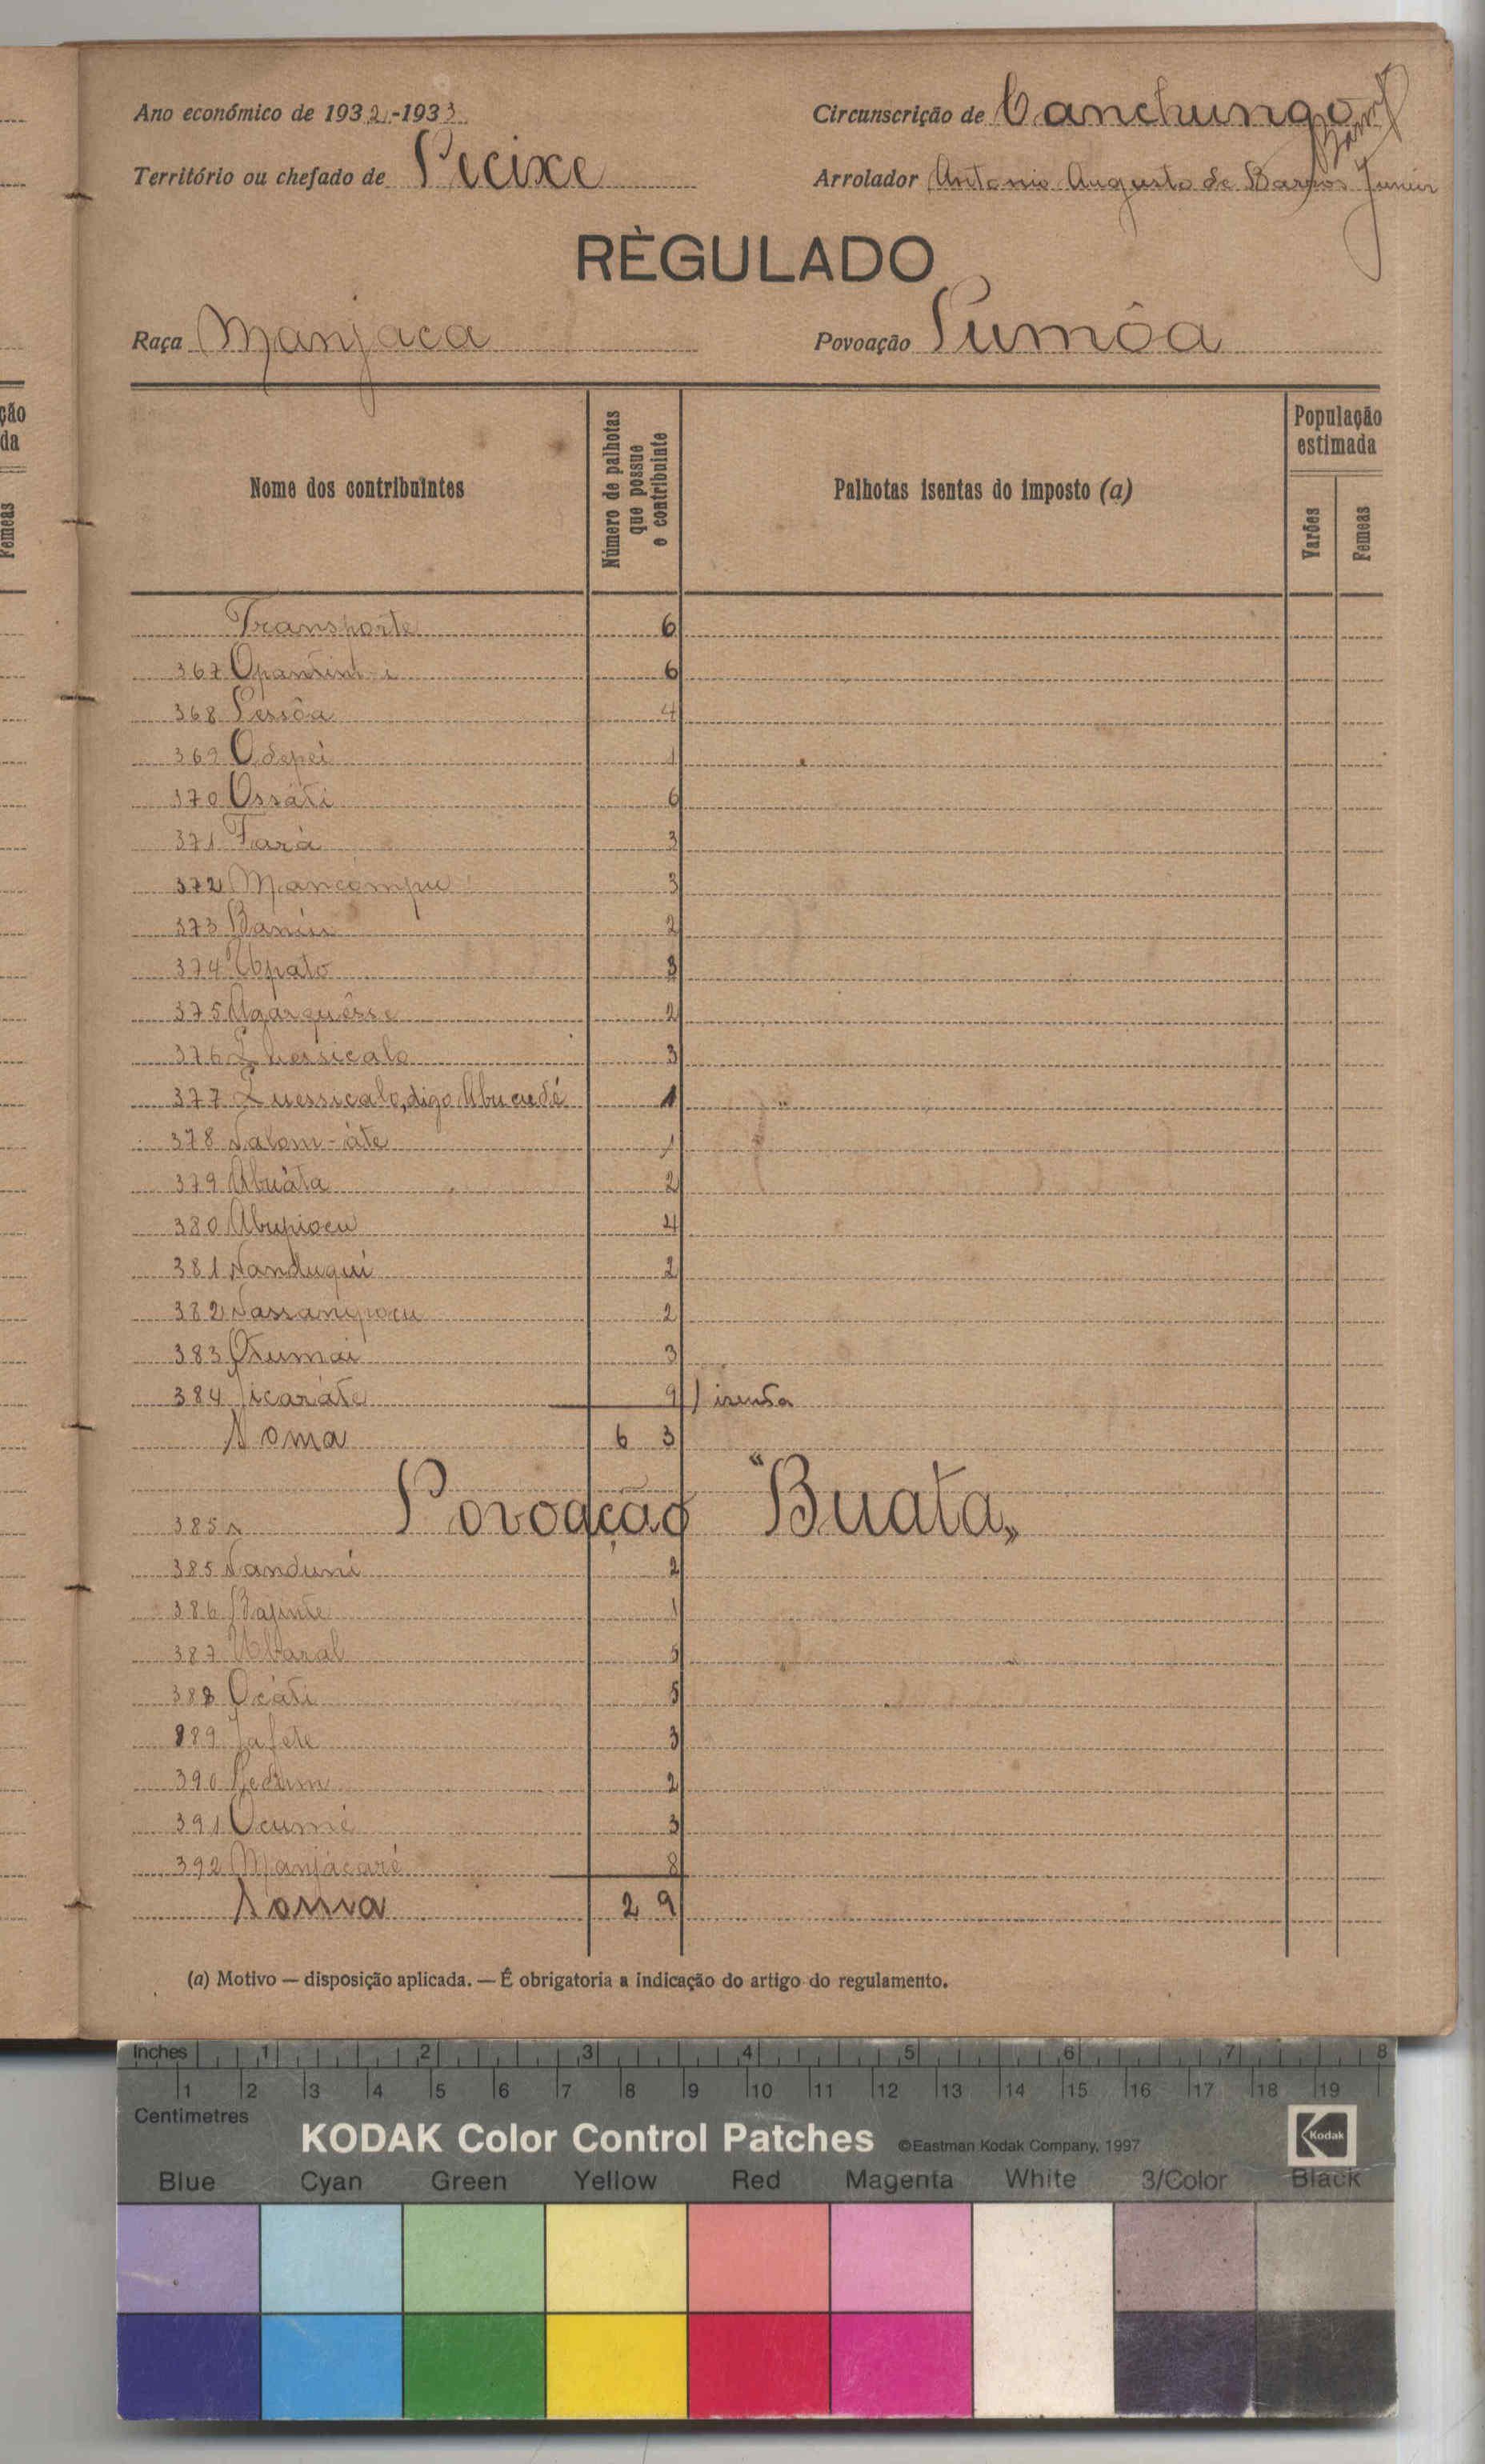 Ano económico de 1932-1933
Circunscrição de Canchungo
Território ou chefado de Pecixe
Arrolador Antonio Augusto de Barros Junior
RÈGULADO
Raça Manjaca
Povoação Pumôa
Nome dos contribuintes
Número de palhotas que possue o contribuinte
Palhotas isentas do imposto (a)
População estimada
Varões
Femeas
ção
da
Femeas
Transporte 6
367 6
368 Pessôa 4
369 Odepei 1
370 Ossáti 6
371 Fará 3
372 Mancómpu 3
373 2
374 Upato 3
375 Agarquêsse 2
376 Quessicalo 3
377 Quessicalo, digo Abucudé 1
378 Nalom-áte 1
379 Abuáta 2
380 Abupiocu 4
381 Nanduqui 2
382 Nassampocu 2
383 Otumai 3
384 Jicaráte 9 1 isenta
Soma 63
Povoação "Buata"
385 N
385 Nanduni 2
386 Bajinte 1
387 Ubaral 5
388 Ocáti 5
389 Jafete 3
390 2
391 Ocumé 3
392 Manjácaré 8
Soma 29
(a) Motivo — disposição aplicada. — É obrigatoria a indicação do artigo do regulamento.
Inches 1 2 3 4 5 6 7 8
1 2 3 4 5 6 7 8 9 10 11 12 13 14 15 16 17 18 19
Centimetres
KODAK Color Control Patches ©Eastman Kodak Company, 1997
Kodak
Blue Cyan Green Yellow Red Magenta White 3/Color Black